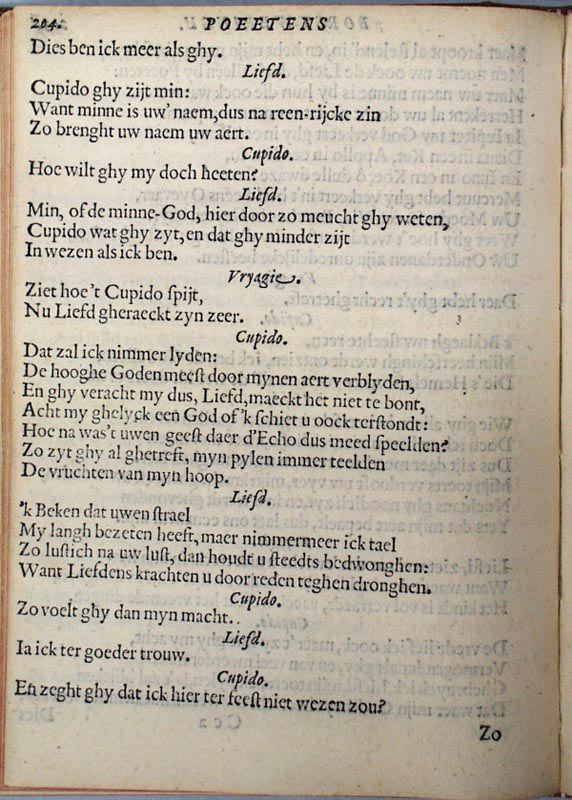 204. POEETENS
Dies ben ick meer als ghy.
Liefd.
Cupido ghy zijt min:
Want minne is uw' naem, dus na reen-rijcke zin
Zo brenght uw naem uw aert.
Cupido.
Hoe wilt ghy my doch heeten?
Liefd.
Min, of de minne-God, hier door zo meucht ghy weten,
Cupido wat ghy zyt, en dat ghy minder zijt
In wezen als ick ben.
Vryagie.
Ziet hoe't Cupido spijt,
Nu Liefd gheraeckt zyn zeer.
Cupido.
Dat zal ick nimmer lyden:
De hooghe Goden meest door mynen aert verblyden,
En ghy veracht my dus, Liefd, maeckt het niet te bont,
Acht my ghelyck een God of 'k schiet u oock terstondt:
Hoe na was't uwen geest daer d'Echo dus meed speelden?
Zo zyt ghy al ghetreft, myn pylen immer teelden
De vruchten van myn hoop.
Liefd.
'k Beken dat uwen strael
My langh bezeten heeft, maer nimmermeer ick tael
Zo lustich na uw lust, dan houdt u steedts bedwonghen:
Want Liefdens krachten u door reden teghen dronghen.
Cupido.
Zo voelt ghy dan myn macht.
Liefd.
Ia ick ter goeder trouw.
Cupido.
En zeght ghy dat ick hier ter feest niet wezen zou?
Zo